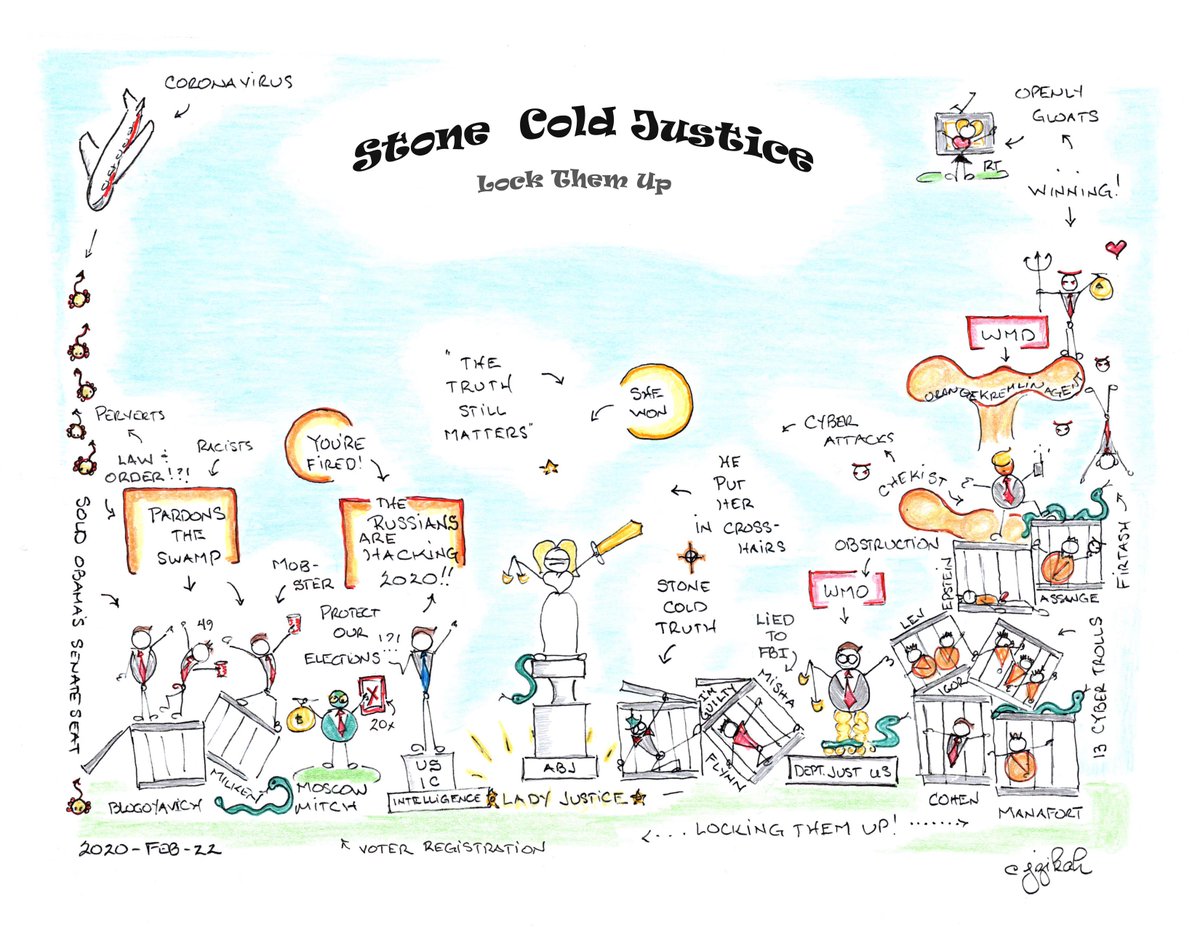 CORONAVIRUS
Stone Cold Justice
Lock Them Up
OPENLY
GLOATS
RT
..
WINNING!
WMD
ORANGE KREMLIN AGENT
"THE
TRUTH
STILL
MATTERS"
SHE
WON
CYBER
ATTACKS
PERVERTS
RACISTS
LAW &
ORDER!?!
YOU'RE
FIRED!
HE
PUT
HER
IN CROSS-
HAIRS
CHEKIST
PARDONS
THE
SWAMP
THE
RUSSIANS
ARE
HACKING
2020!!
OBSTRUCTION
FIRTASH
SOLD OBAMA'S SENATE SEAT
MOB-
STER
STONE
COLD
TRUTH
WMO
EPSTEIN
ASSANGE
49
PROTECT
OUR
ELECTIONS
!?!
LIED
TO
FBI
LEV
IGOR
13 CYBER TROLLS
20x
IM
GUILTY
MISHA
FLYNN
US
IC
ABJ
DEPT. JUST US
BLAGOYAVICH
MILKEN
MOSCOW
MITCH
INTELLIGENCE
LADY JUSTICE
COHEN
MANAFORT
<... LOCKING THEM UP! ......>
2020-FEB-22
VOTER REGISTRATION
c jzikah